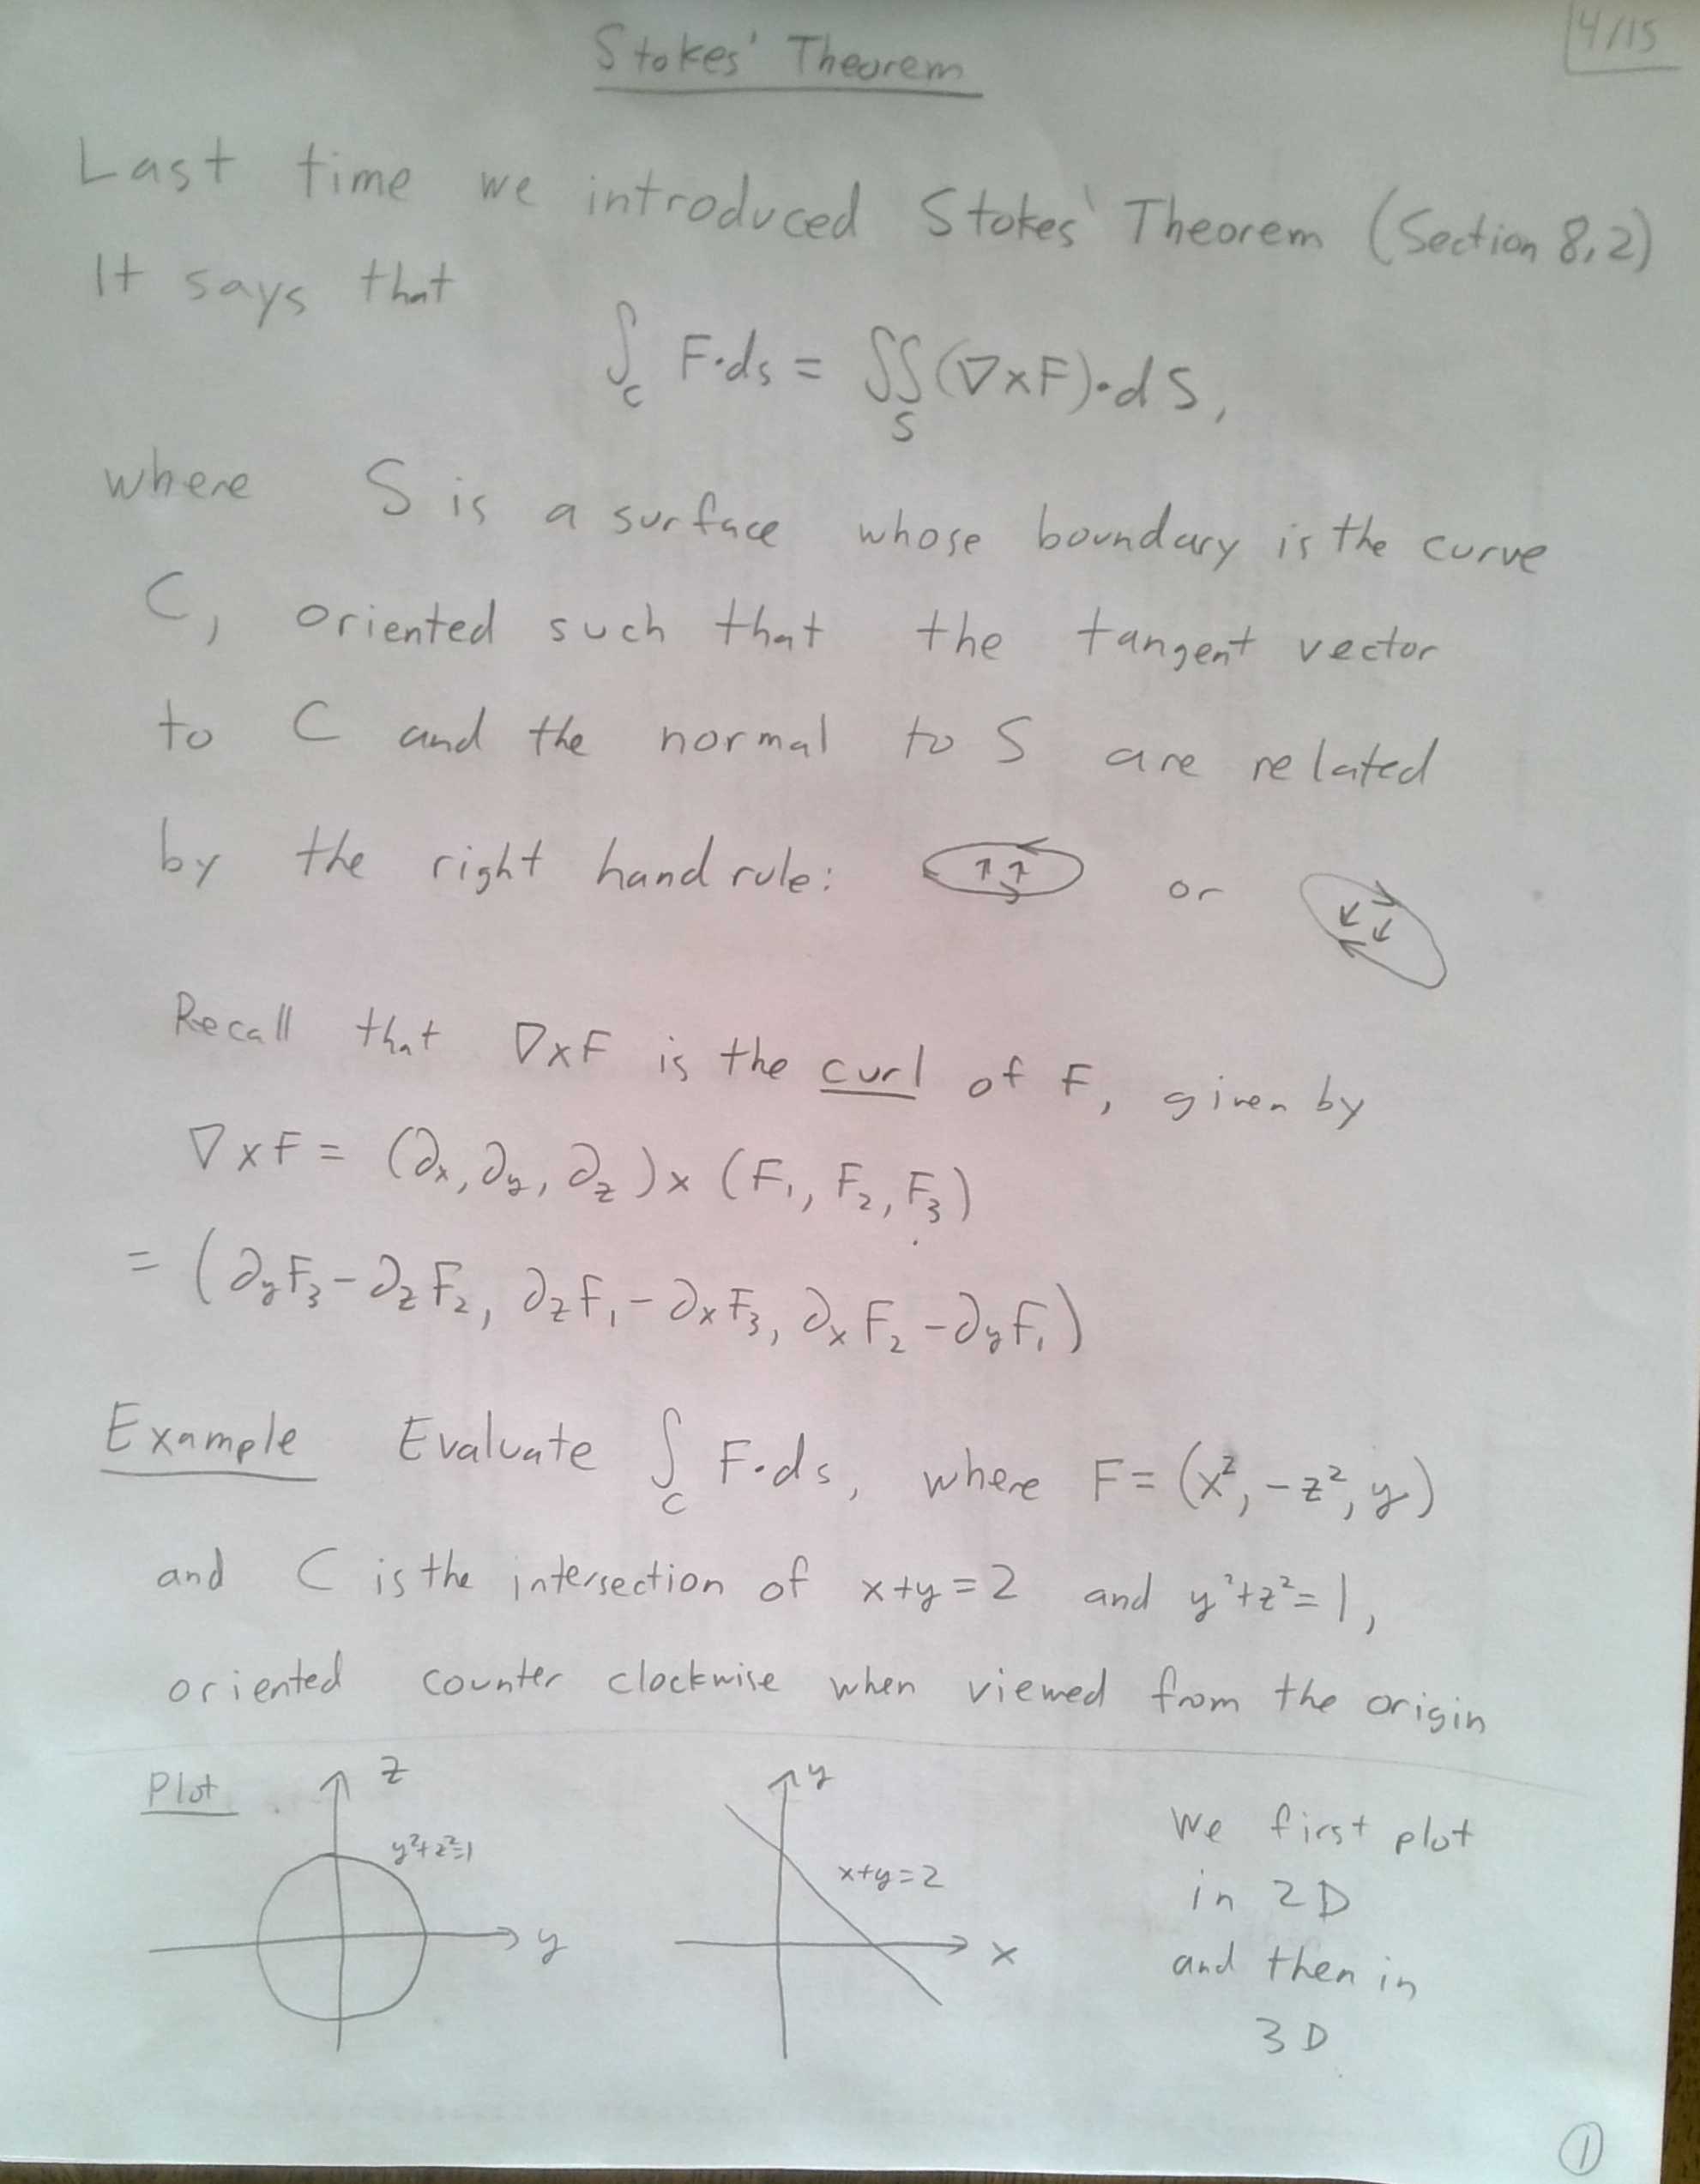 Stokes' Theorem
4/15
Last time we introduced Stokes' Theorem (Section 8.2)
It says that
∫_C F·ds = ∬_S (∇×F)·dS,
where S is a surface whose boundary is the curve
C, oriented such that the tangent vector
to C and the normal to S are related
by the right hand rule: or
Recall that ∇×F is the curl of F, given by
∇×F = (∂x, ∂y, ∂z)×(F₁, F₂, F₃)
= (∂yF₃-∂zF₂, ∂zF₁-∂xF₃, ∂xF₂-∂yF₁)
Example Evaluate ∫_C F·ds, where F=(x², -z², y)
and C is the intersection of x+y=2 and y²+z²=1,
oriented counter clockwise when viewed from the origin
Plot
z
y²+z²=1
y
y
x+y=2
x
We first plot
in 2D
and then in
3D
1